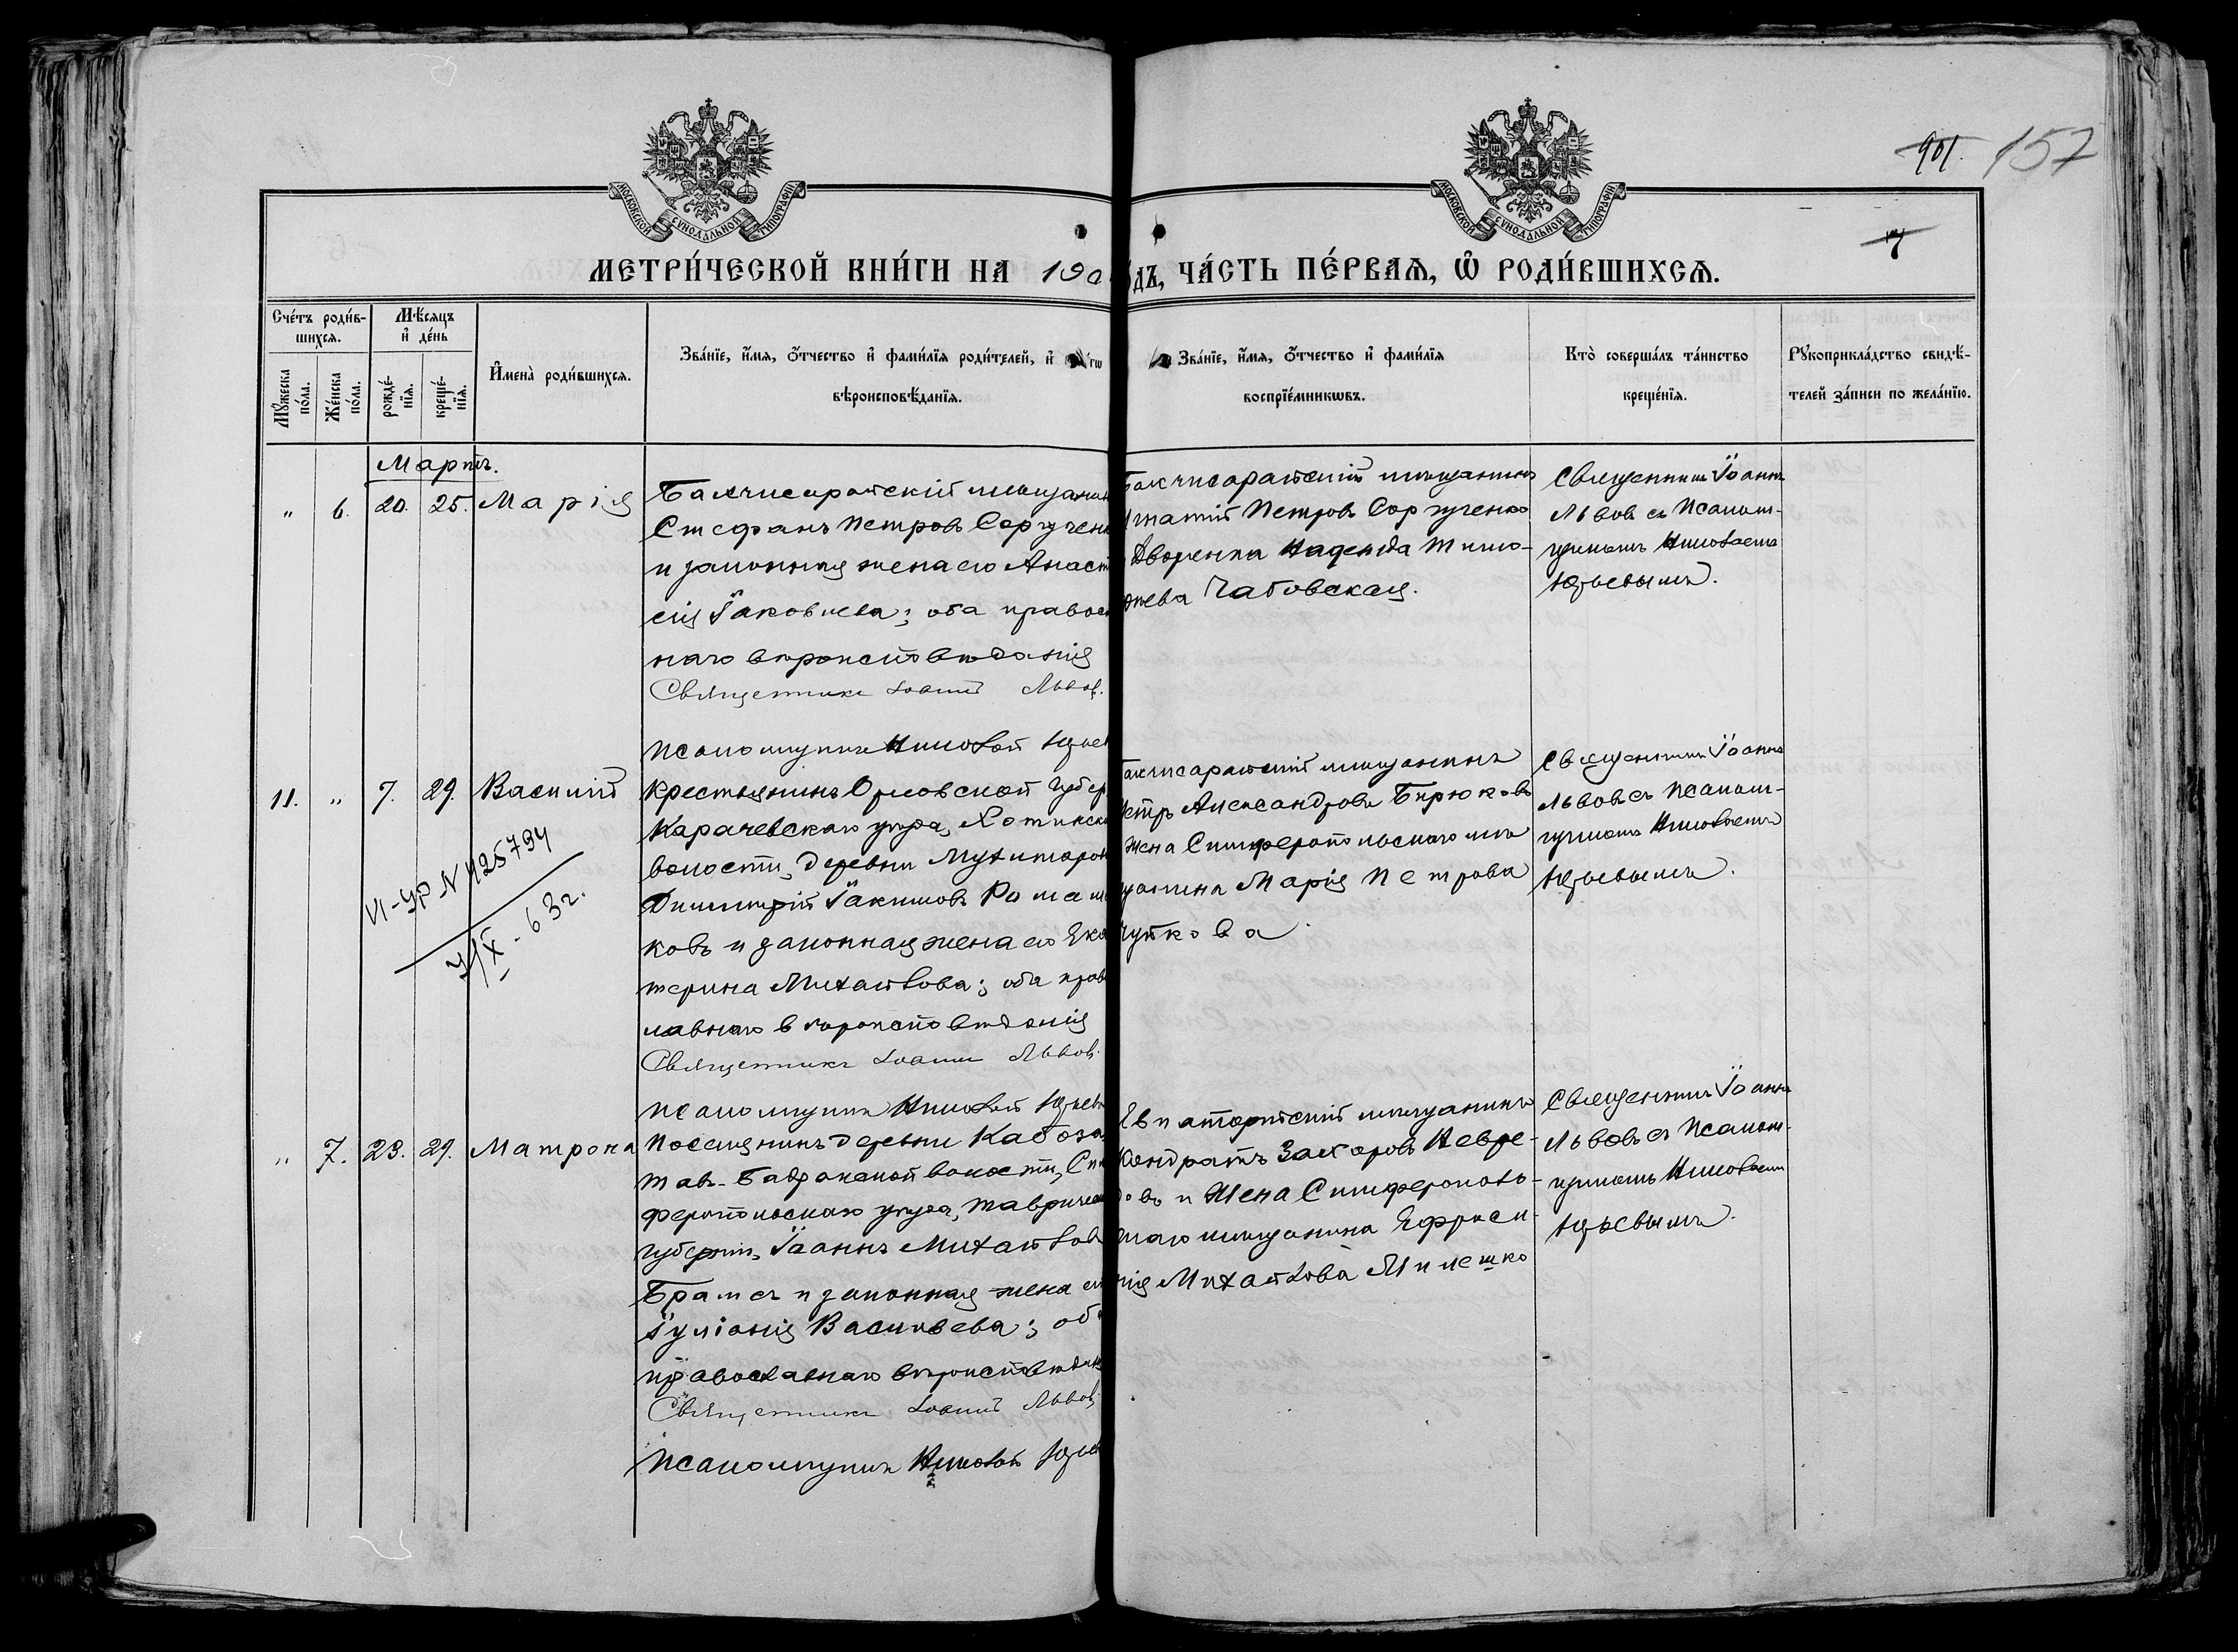 901. 157
7
МОСКОВСКОЙ СУНОДАЛЬНОЙ ТИПОГРАФІИ
МОСКОВСКОЙ СУНОДАЛЬНОЙ ТИПОГРАФІИ
МЕТРИ́ЧЕСКОЙ КНИ́ГИ НА 190
дъ, ЧА́СТЬ ПЕ́РВАѦ, Ѿ РОДИ́ВШИХСѦ.
Сче́тъ роди́в-
шихсѧ.
Мꙋ́жеска по́ла.
Же́нска по́ла.
Мѣ́сѧцъ
и҆ де́нь
рожде́-
нїѧ.
креще́-
нїѧ.
И҆мена̀ роди́вшихсѧ.
Зва́нїе, и҆́мѧ, ѻ҆́тчество и҆ фами́лїѧ роди́телей, и҆
вѣроисповѣ́данїѧ.
Зва́нїе, и҆́мѧ, ѻ҆́тчество и҆ фами́лїѧ
воспрїе́мникѡвъ.
Кто̀ соверша́лъ та́инство
креще́нїѧ.
Рꙋкоприкла́дство свидѣ́-
телей за́писи по жела́нїю.
Мартъ.
" 6. 20. 25. Марія
Бахчисарайскій мѣщанин
Стефанъ Петровъ Сергученк
и законная жена его Анаст
сія Іаковлева; оба правос
наго вѣроисповѣданія
Священникъ Іоаннъ Львов.
Псаломщикъ Николай Юрьев
Бахчисарайскій мѣщанинъ
Игнатій Петровъ Сергученко
Дворянка Надежда Тимо-
феева Чабовская.
Священникъ Іоаннъ
Львовъ съ псалом-
щикомъ Николаемъ
Юрьевымъ.
11. " 7. 29. Василій
VI-ЯР N 425794
4/X - 63 г.
Крестьянинъ Орловской губер
Карачевскаго уѣзда, Хотинской
волости, деревни
Димитрій Іакимовъ Ромаш
ковъ и законная жена его Ека
терина Михайлова; оба прав
лавнаго вѣроисповѣданія
Священникъ Іоаннъ Львов.
Псаломщикъ Николай Юрьев
Бахчисарайскій мѣщанинъ
Петръ Александровъ Бирюковъ
жена Симферопольскаго мѣ
щанина Марія Петрова
Чуйкова.
Священникъ Іоаннъ
Львовъ съ псалом-
щикомъ Николаемъ
Юрьевымъ.
" 7. 23. 29. Матрона
Поселянинъ деревни Кабаза
Тав-Бадракской волости, Сим
феропольскаго уѣзда, Тавриче
губерніи, Іоаннъ Михайлов
Брамсъ и законная жена ег
Іуліанія Васильева; оба
православнаго вѣроисповѣдан
Священникъ Іоаннъ Львов.
Псаломщикъ Николай Юрьев
Евпаторійскій мѣщанинъ
Кондратъ Захаровъ Невре-
довъ и жена Симферополь-
скаго мѣщанина Ефроси-
нія Михайлова Милешко
Священникъ Іоаннъ
Львовъ съ псалом-
щикомъ Николаемъ
Юрьевымъ.